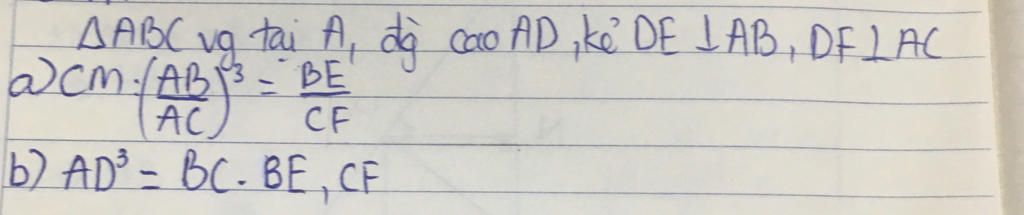 ΔABC vg tại A, đg cao AD, kẻ DE ⊥ AB, DF ⊥ AC
a) CM: (AB/AC)³ = BE/CF
b) AD³ = BC. BE, CF